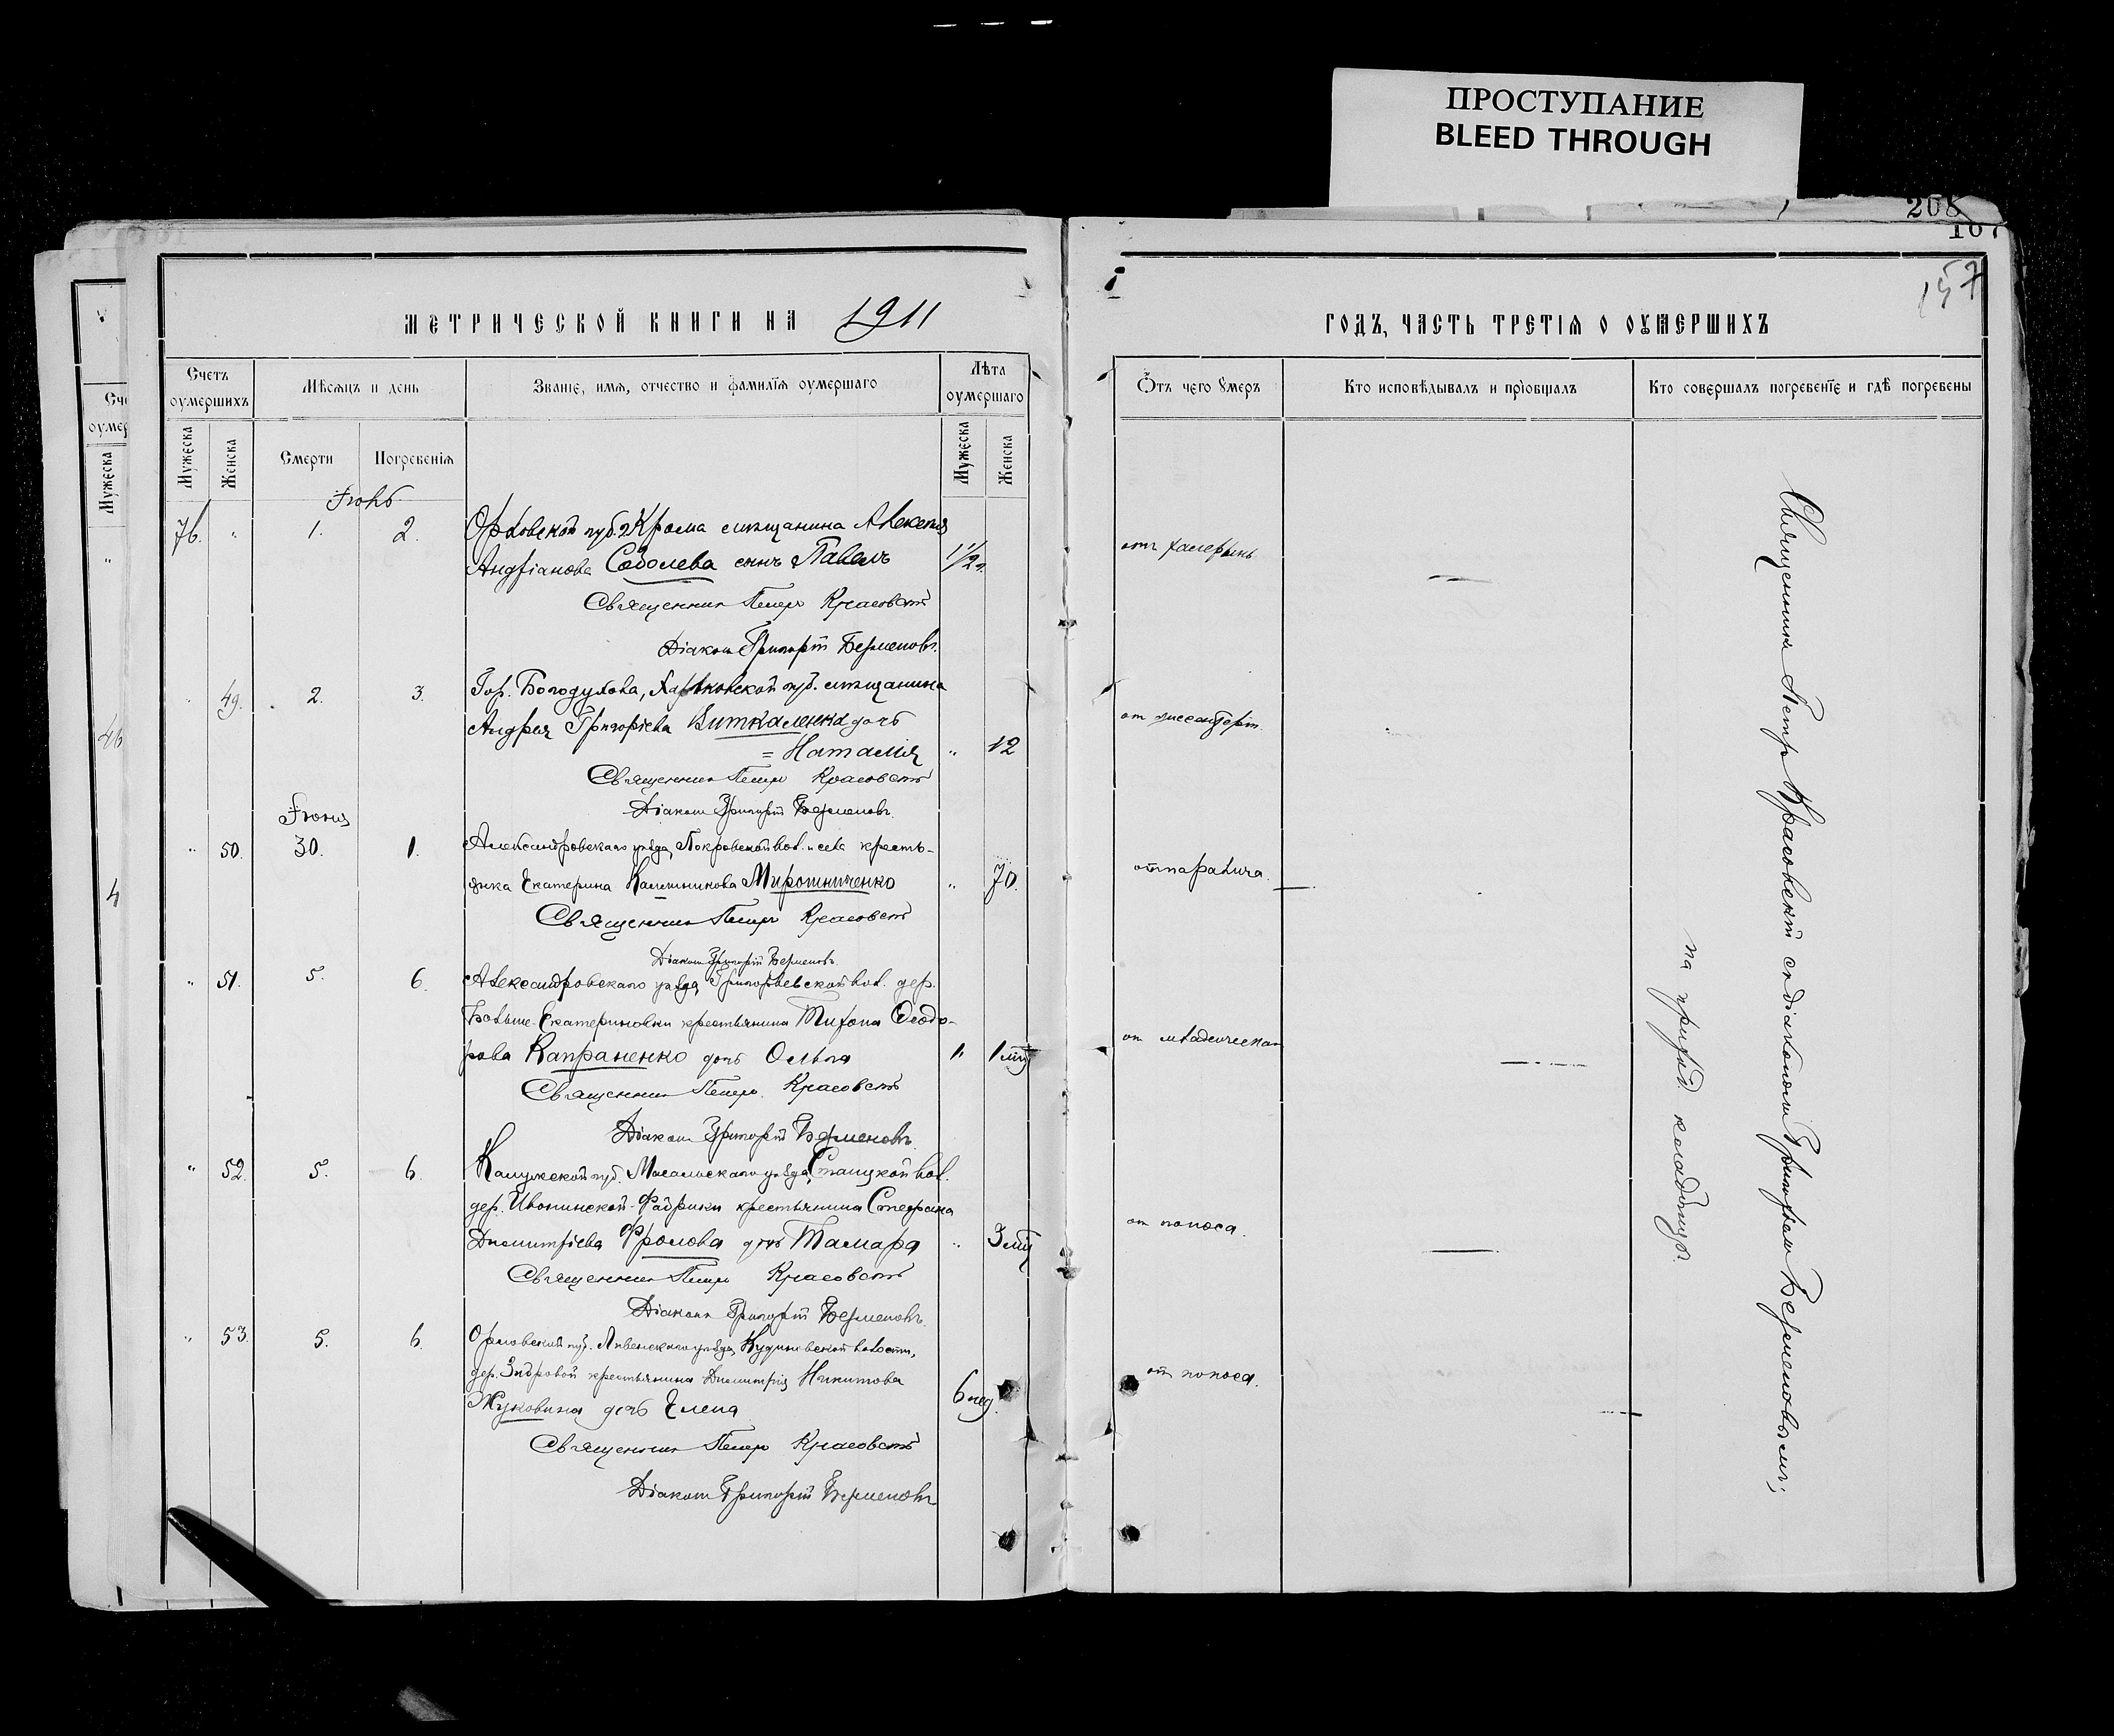 ПРОСТУПАНИЕ
BLEED THROUGH
208
107
157
МЕТРИЧЕСКОЙ КНИГИ НА 1911
ГОДЪ, ЧАСТЬ ТРЕТІЯ О ОУМЕРШИХЪ
Счетъ оумершихъ
Мѣсяцъ и день
Званіе, имя, отчество и фамилія оумершаго
Лѣта оумершаго
Мужеска
Женска
Смерти
Погребенія
Мужеска
Женска
Отъ чего умеръ
Кто исповѣдывалъ и пріобщалъ
Кто совершалъ погребеніе и гдѣ погребены
76. " 1. 2. Орловской губ. г. Крома мѣщанина Алексѣя
Андріанова Соболева сынъ Павелъ 1 1/2 г.
отъ холерины
Священникъ Петръ Красовскій
Діаконъ Григорій Берменовъ.
49. 2. 3. Гор. Богодухова, Харьковской губ. мѣщанина
Андрея Григоріева Виткаленка дочь
= Наталія " 12
от дисентеріи.
Священникъ Петръ Красовскій
Діаконъ Григорій Берменовъ.
" 50. 30. 1. Александровскаго уѣзда, Покровской вол. и села кресть-
янка Екатерина Калашникова Мирошниченко " 70.
отъ паралича.
Священникъ Петръ Красовскій
Діаконъ Григорій Берменовъ.
" 51. 5. 6. Александровскаго уѣзда, Григорьевской вол. дер.
Больше-Екатериновки крестьянина Тихона Ѳеодо-
рова Капраненко дочь Ольга " 1 мѣс
от младенческой
Священникъ Петръ Красовскій
Діаконъ Григорій Берменовъ.
" 52. 5. 6. Калужской губ. Мосальскаго уѣзда, вол.
дер. Фабрики крестьянина Стефана
Димитріева Фролова дочь Тамара " 3 мѣс
от поноса.
Священникъ Петръ Красовскій
Діаконъ Григорій Берменовъ.
" 53. 5. 6. Орловской губ. Ливенскаго уѣзда, волости,
дер. крестьянина Димитрія Никитова
Жуковина дочь Елена 6 нед.
от поноса.
Священникъ Петръ Красовскій
Діаконъ Григорій Берменовъ
Священникъ Петръ Красовскій съ діакономъ Григоріемъ Берменовымъ;
на приход. кладбищѣ.